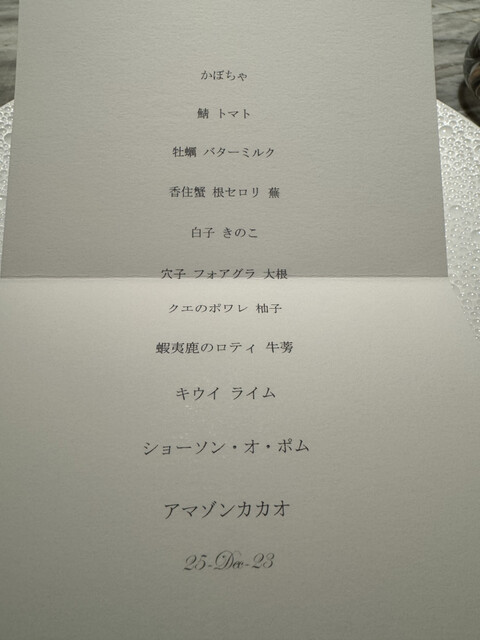 かぼちゃ
鯖 トマト
牡蠣 バターミルク
香住蟹 根セロリ 蕪
白子 きのこ
穴子 フォアグラ 大根
クエのポワレ 柚子
蝦夷鹿のロティ 牛蒡
キウイ ライム
ショーソン・オ・ポム
アマゾンカカオ
25-Dec-23